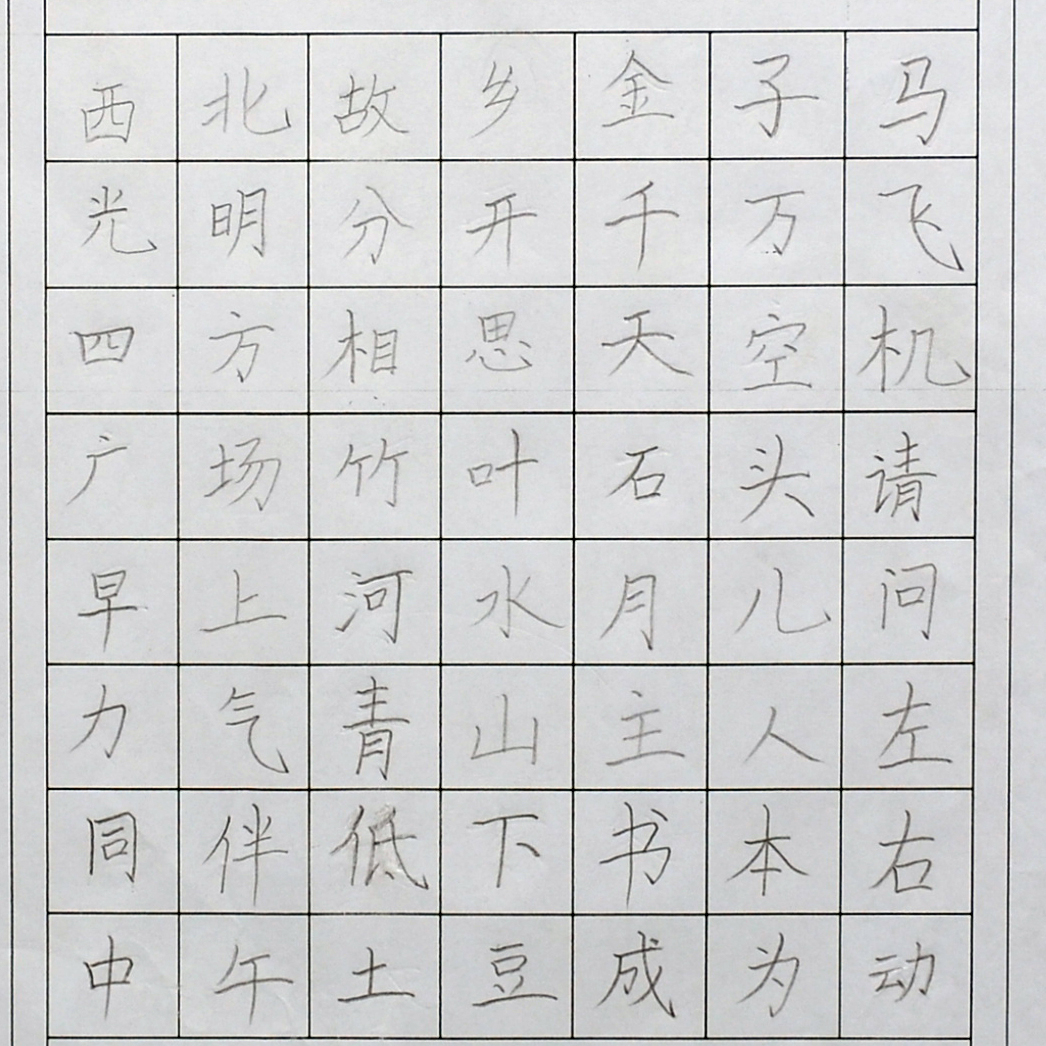 西北故乡金子马
光明分开千万飞
四方相思天空机
广场竹叶石头请
早上河水月儿问
力气青山主人左
同伴低下书本右
中午土豆成为动